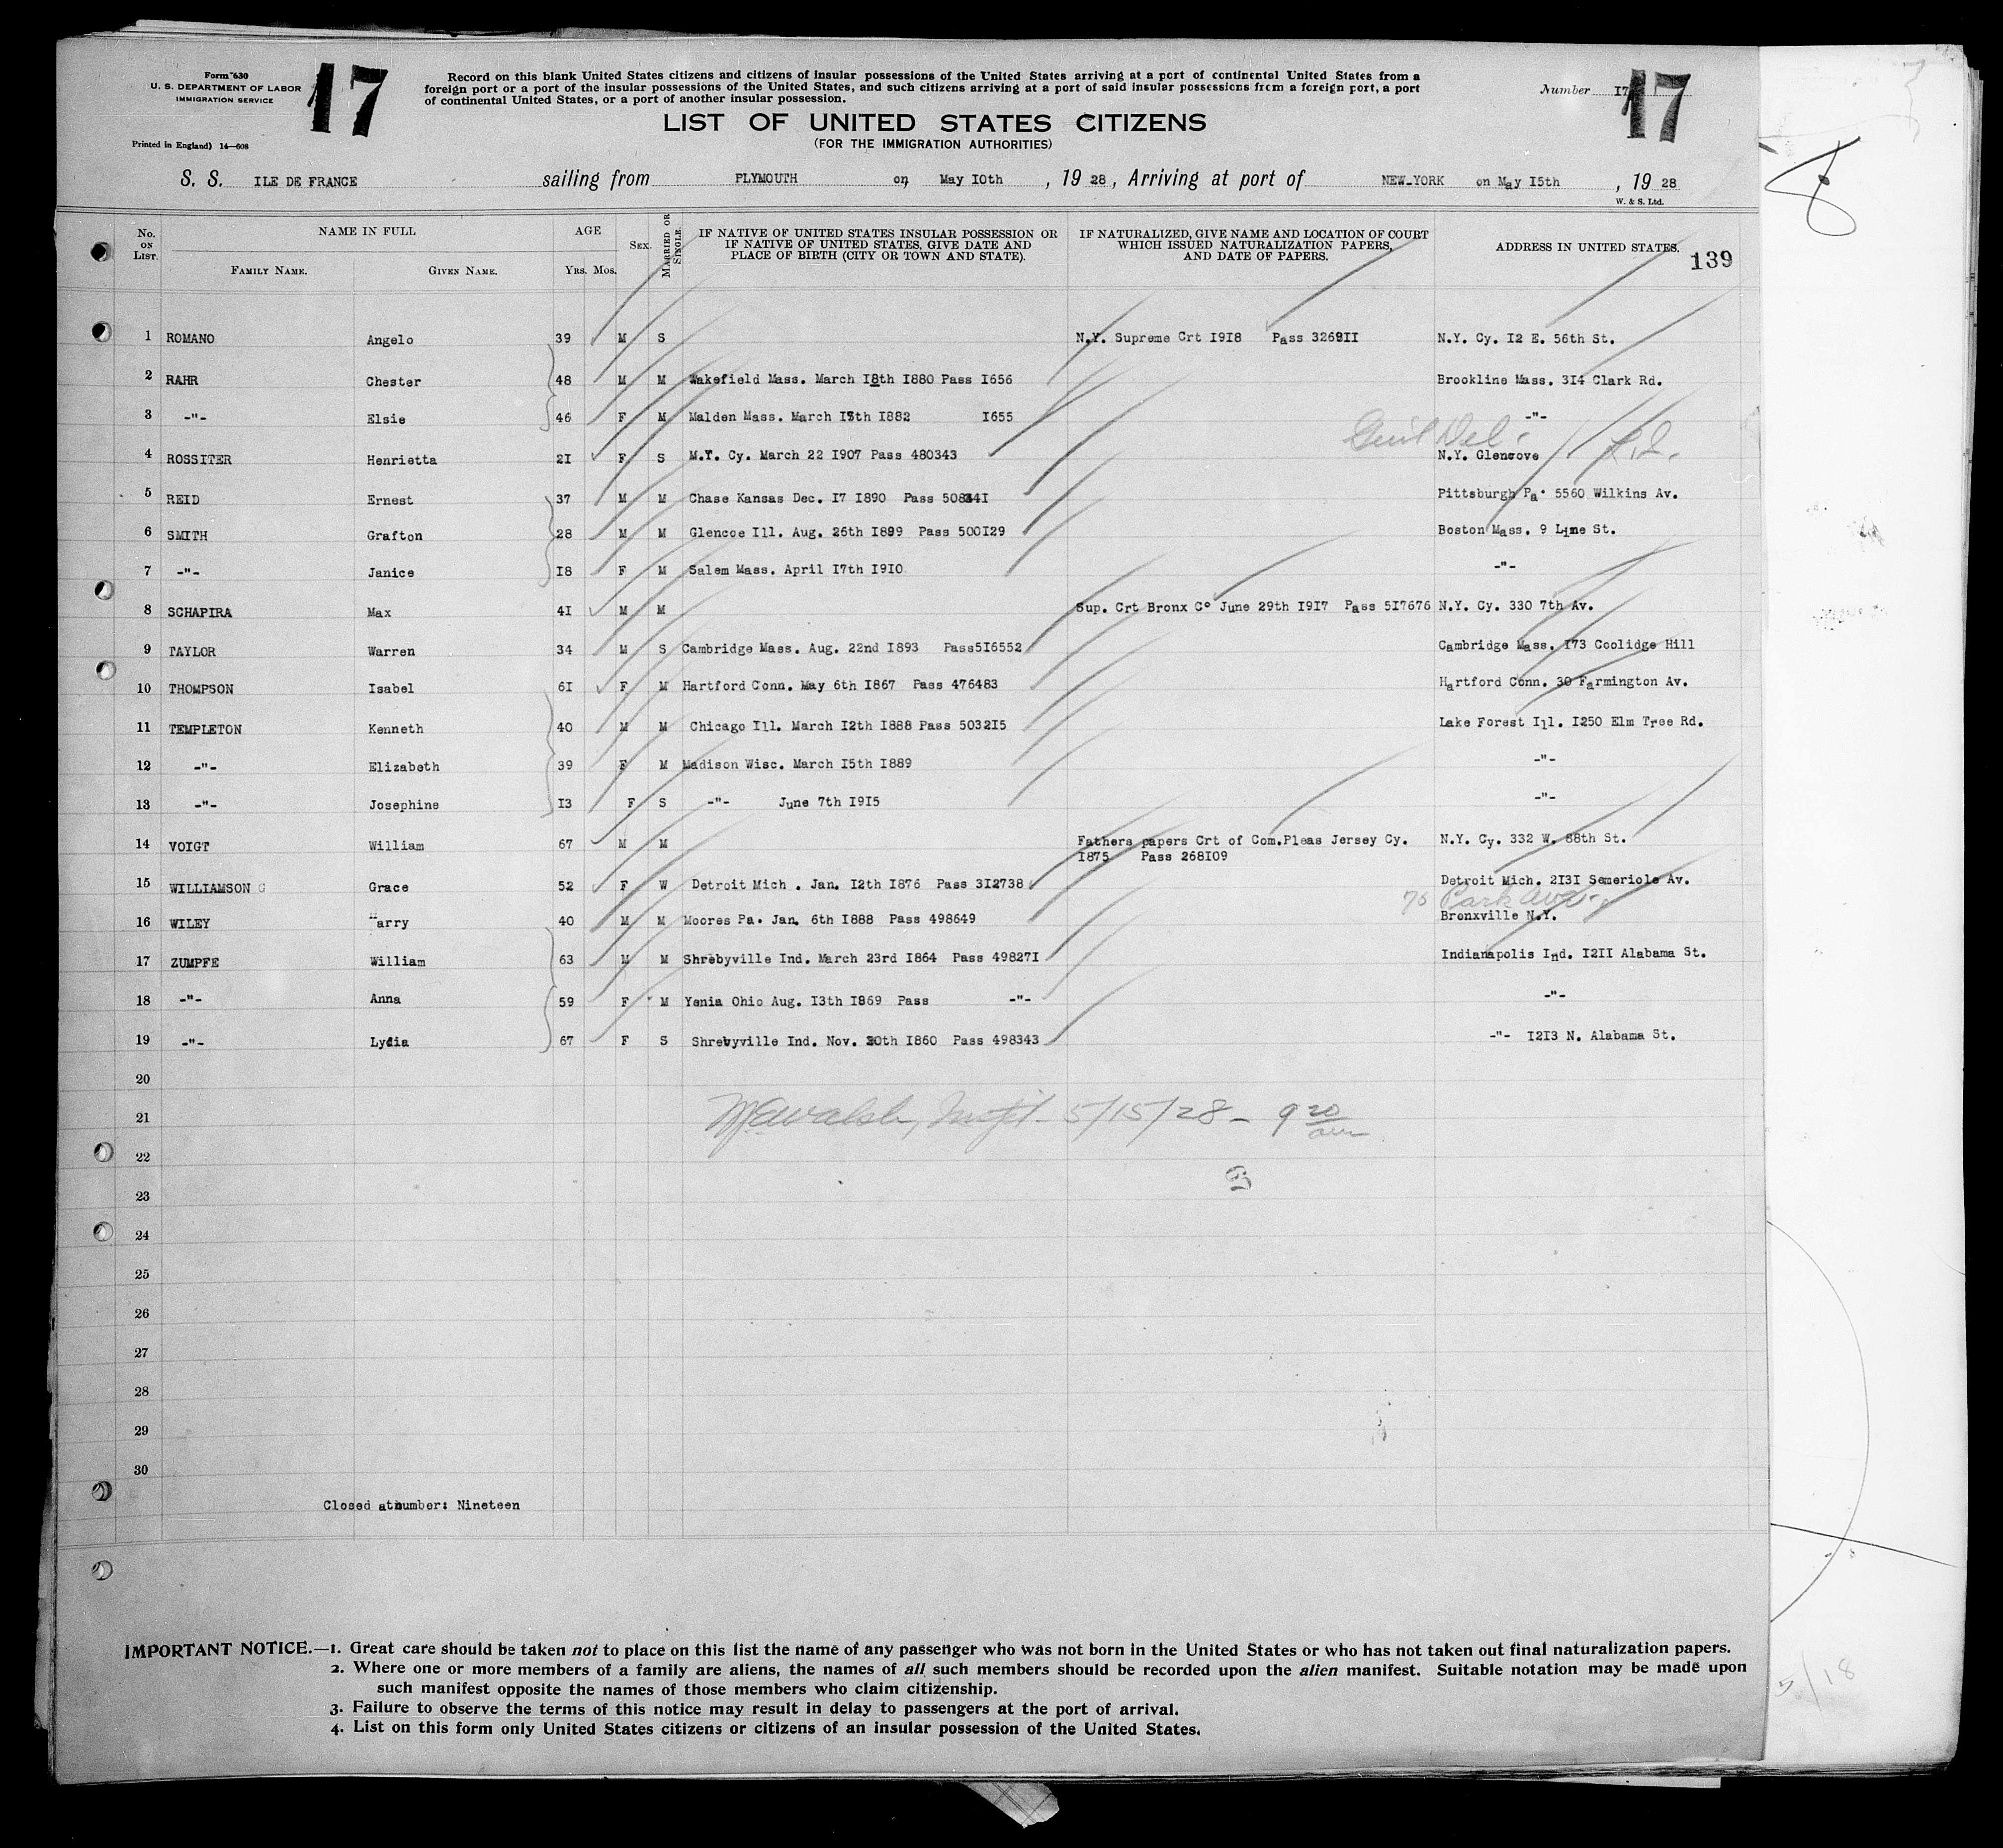 Form 630
U. S. DEPARTMENT OF LABOR
IMMIGRATION SERVICE
17
Printed in England) 14—608
Record on this blank United States citizens and citizens of insular possessions of the United States arriving at a port of continental United States from a
foreign port or a port of the insular possessions of the United States, and such citizens arriving at a port of said insular possessions from a foreign port, a port
of continental United States, or a port of another insular possession.
LIST OF UNITED STATES CITIZENS
(FOR THE IMMIGRATION AUTHORITIES)
Number 17
17
S. S. ILE DE FRANCE sailing from PLYMOUTH on May I0th , 19 28 , Arriving at port of NEW-YORK on May I5th , 19 28
W. & S. Ltd.
No. ON LIST. NAME IN FULL FAMILY NAME. GIVEN NAME. AGE YRS. MOS. SEX. MARRIED OR SINGLE. IF NATIVE OF UNITED STATES INSULAR POSSESSION OR IF NATIVE OF UNITED STATES, GIVE DATE AND PLACE OF BIRTH (CITY OR TOWN AND STATE). IF NATURALIZED, GIVE NAME AND LOCATION OF COURT WHICH ISSUED NATURALIZATION PAPERS, AND DATE OF PAPERS. ADDRESS IN UNITED STATES. 139
1 ROMANO Angelo 39 M S N.Y. Supreme Crt I9I8 Pass 3269II N.Y. Cy. I2 E. 56th St.
2 RAHR Chester 48 M M Wakefield Mass. March I8th I880 Pass I656 Brookline Mass. 3I4 Clark Rd.
3 -"- Elsie 46 F M Malden Mass. March I3th I882 I655 -"-
4 ROSSITER Henrietta 2I F S N.Y. Cy. March 22 I907 Pass 480343 N.Y. Glencove
5 REID Ernest 37 M M Chase Kansas Dec. I7 I890 Pass Pittsburgh Pa. 5560 Wilkins Av.
6 SMITH Grafton 28 M M Glencoe Ill. Aug. 26th I899 Pass 500I29 Boston Mass. 9 Lime St.
7 -"- Janice I8 F M Salem Mass. April I7th I9I0 -"-
8 SCHAPIRA Max 4I M M Sup. Crt Bronx C° June 29th I9I7 Pass 5I7676 N.Y. Cy. 330 7th Av.
9 TAYLOR Warren 34 M S Cambridge Mass. Aug. 22nd I893 Pass5I6552 Cambridge Mass. I73 Coolidge Hill
10 THOMPSON Isabel 6I F M Hartford Conn. May 6th I867 Pass 476483 Hartford Conn. 30 Farmington Av.
11 TEMPLETON Kenneth 40 M M Chicago Ill. March I2th I888 Pass 5032I5 Lake Forest Ill. I250 Elm Tree Rd.
12 -"- Elizabeth 39 F M Madison Wisc. March I5th I889 -"-
13 -"- Josephine I3 F S -"- June 7th I9I5 -"-
14 VOIGT William 67 M M Fathers papers Crt of Com.Pleas Jersey Cy. N.Y. Cy. 332 W. 88th St.
I875 Pass 268I09
15 WILLIAMSON G Grace 52 F W Detroit Mich . Jan. I2th I876 Pass 3I2738 Detroit Mich. 2I3I Semeriole Av.
70 Park Ave
16 WILEY Harry 40 M M Moores Pa. Jan. 6th I888 Pass 498649 Bronxville N.Y.
17 ZUMPFE William 63 M M Shrebyville Ind. March 23rd I864 Pass 49827I Indianapolis Ind. I2II Alabama St.
18 -"- Anna 59 F M Yenia Ohio Aug. I3th I869 Pass -"- -"-
19 -"- Lydia 67 F S Shrebyville Ind. Nov. 30th I860 Pass 498343 -"- I2I3 N. Alabama St.
20
21 5/15/28 - 9 20 am
22
23
24
25
26
27
28
29
30
Closed atnumber: Nineteen
IMPORTANT NOTICE.—1. Great care should be taken not to place on this list the name of any passenger who was not born in the United States or who has not taken out final naturalization papers.
2. Where one or more members of a family are aliens, the names of all such members should be recorded upon the alien manifest. Suitable notation may be made upon
such manifest opposite the names of those members who claim citizenship.
3. Failure to observe the terms of this notice may result in delay to passengers at the port of arrival.
4. List on this form only United States citizens or citizens of an insular possession of the United States.
8
5/18